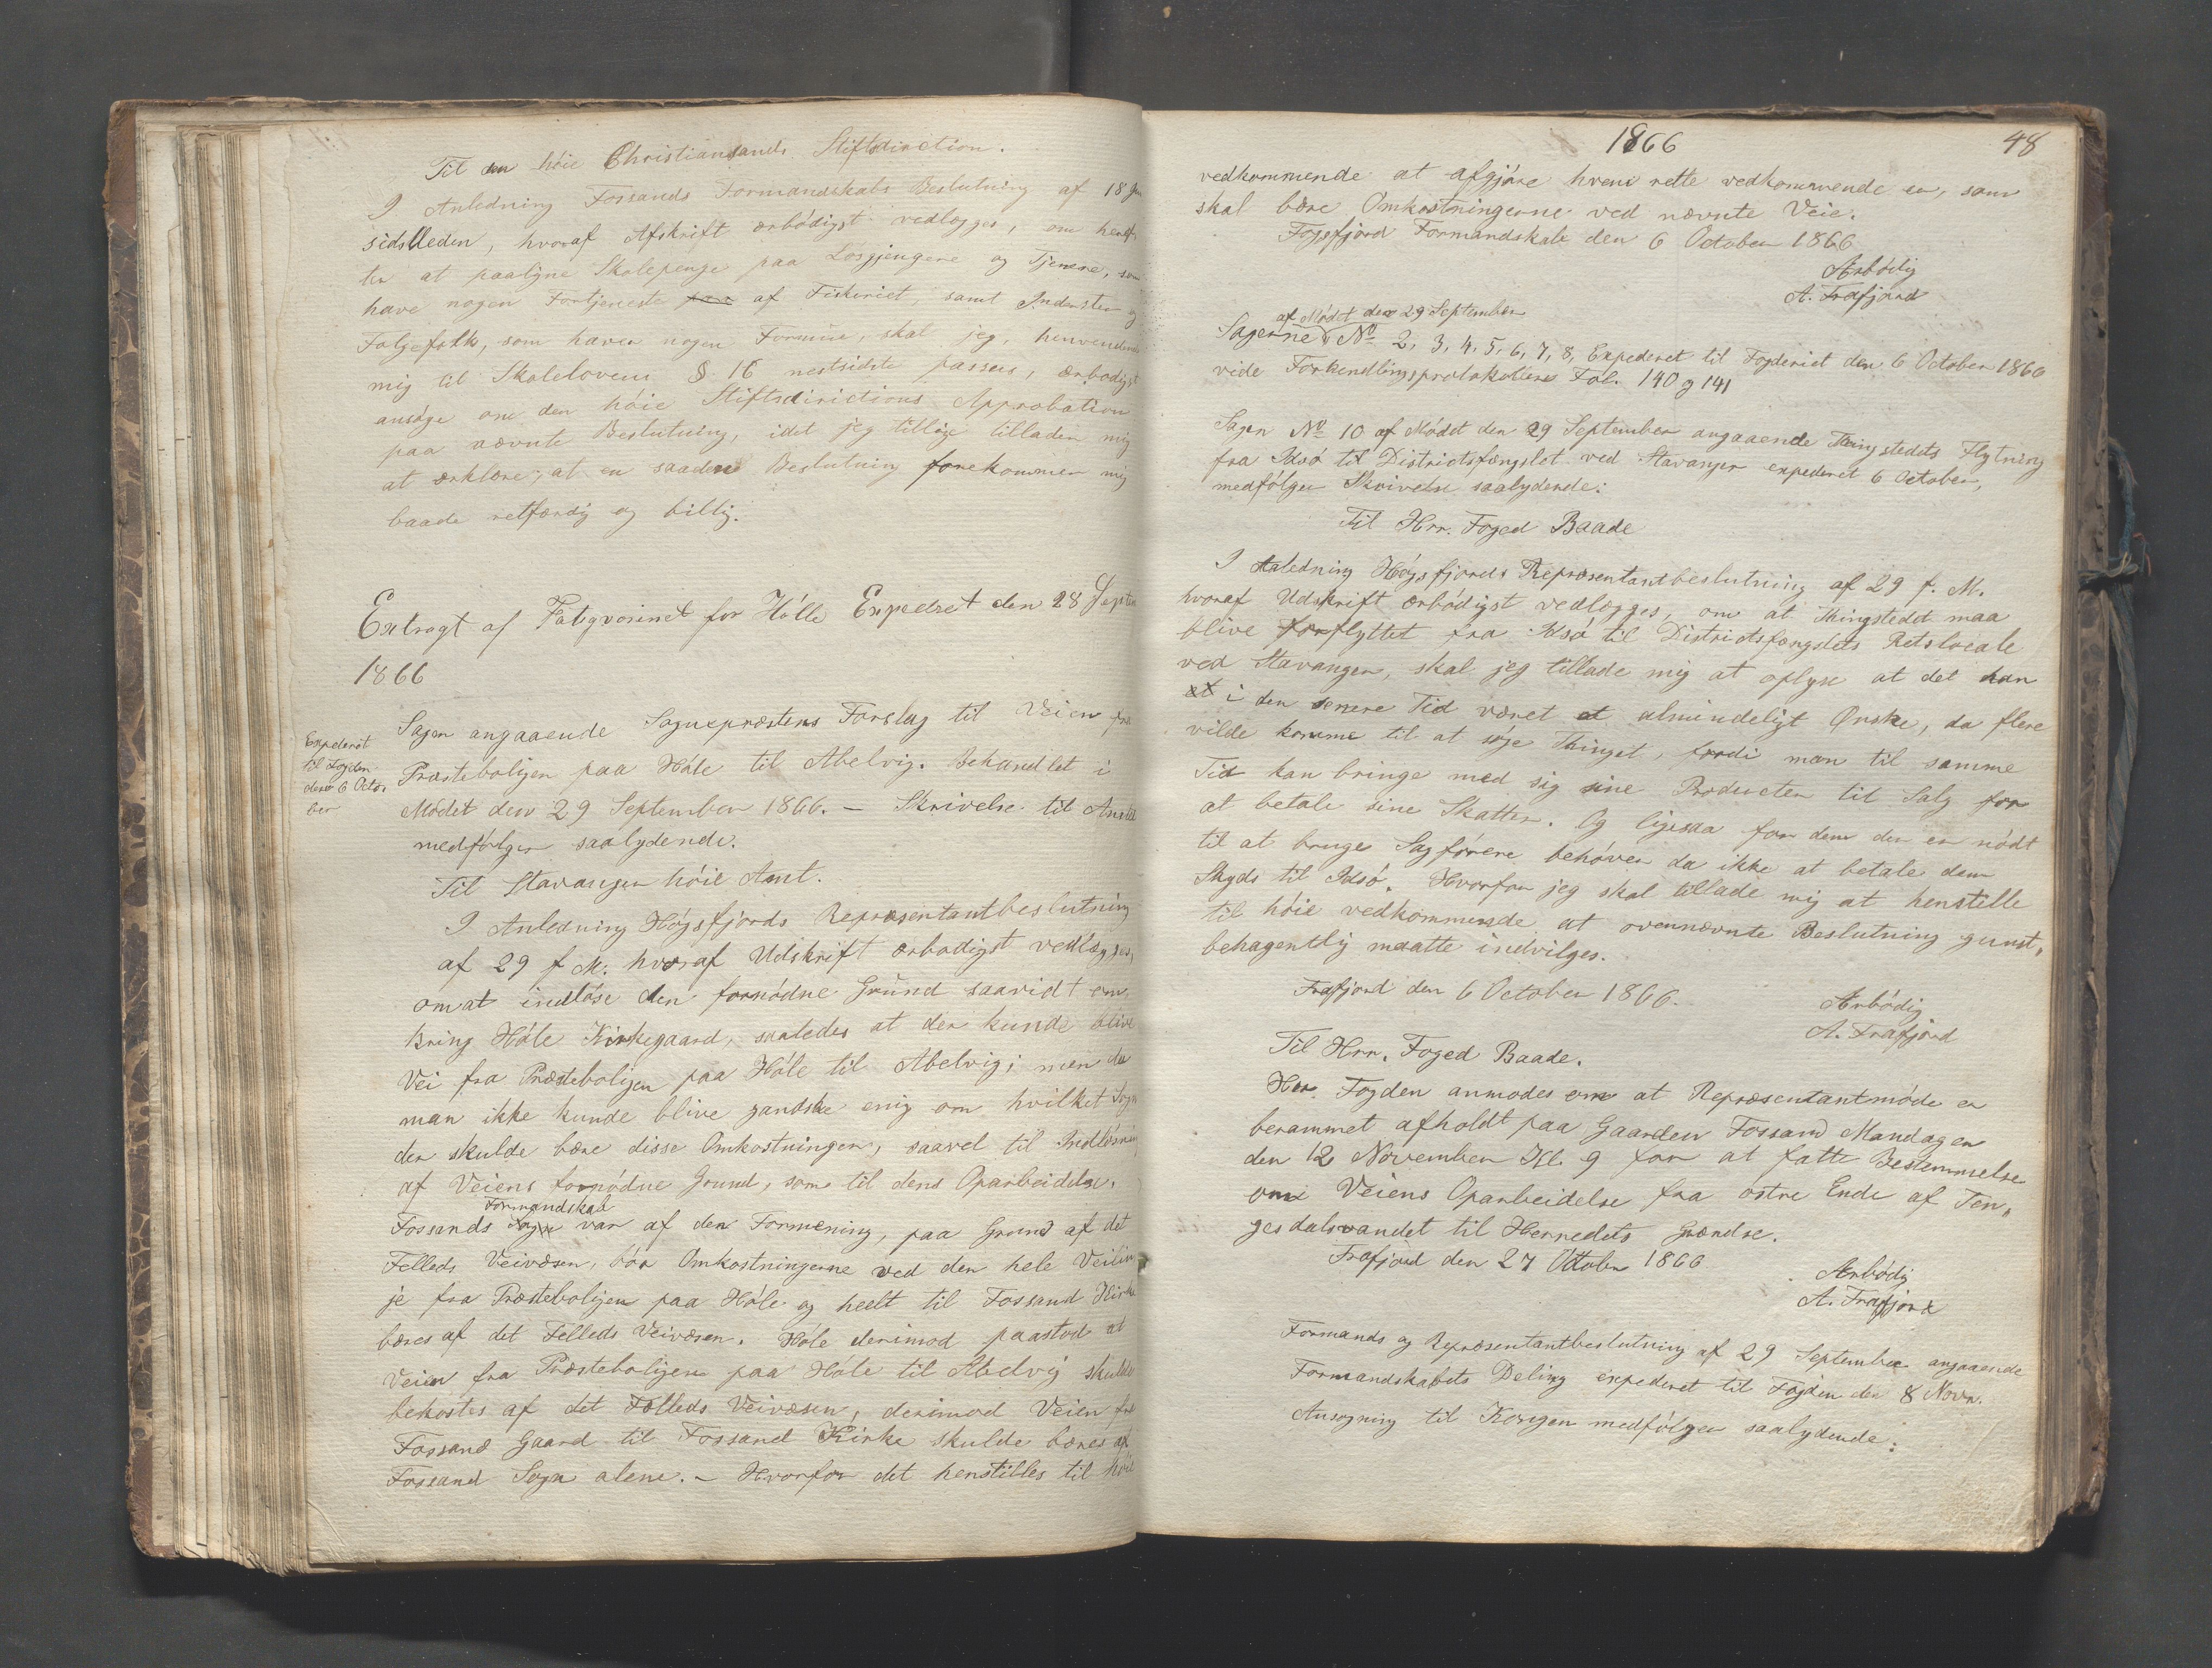 Til den høie Christiansands Stiftsdirection.
I Anledning Forsands Formandskabs Beslutning af 18
sidstleden, hvoraf Afskrift ærbødigst vedlægges, om
ter at paaligne Skolepenge paa Losgjengere og Tjenere, som
have nogen Fortjeneste paa af Fiskeriet, samt Inderster og
Folgefolk, som haver nogen Formue, skal jeg, henvendende
mig til Skolelovens § 16 nestsidste passus, ærbødigst
ansøge om den høie Stiftsdirictions Approbation
paa nævnte Beslutning, idet jeg tillige tillader mig
at erklære, at en saadan Beslutning forekommer mig
baade retfærdig og billig.
Extragt af Fatigvæsenet for Hölle Expedret den 28 Septem
1866
Expederet
til Fogden
den 6 Octo-
ber
Sagen angaaende Sognepræstens Forslag til Veien fra
Præsteboligen paa Höle til Abelvig. Behandlet i
Mödet den 29 September 1866. - Skrivelse til Amtet
medfölger saalydende.
Til Stavanger höie Amt.
I Anledning Högsfjords Repræsentantbeslutning
af 29 f. M. hvoraf Udskrift ærbødigst vedlægges,
om at indlöse den fornödne Grund saavidt om-
kring Höle Kirkegaard, saaledes at der kunde blive
Vei fra Præsteboligen paa Höle til Abelvig; men da
man ikke kunde blive gandske enig om hvilket Sogn
der skulde bære disse Omkostninger, saavel til Indlösning
af Veiens fornödne Grund, som til dens Oparbeidelse.
Formandskab
Fossands Sogn var af den Formening, paa Grund af det
Felleds Veivæsen, bör Omkostningerne ved den hele Veilin
je fra Præsteboligen paa Höle og heelt til Fossand Kirke
bæres af det Felleds Veivæsen. Höle derimod paastod at
Veien fra Præsteboligen paa Höle til Abelvig skulde
bekostes af det Fælleds Veivæsen, derimod Veien fra
Fossand Gaard til Fossand Kirke skulde bæres af
Fossand Sogn alene. - Hvorfor det henstilles til höie
1866
48
vedkommende at afgjöre hvem rette vedkommende er, som
skal bære Omkostningerne ved nævnte Veie.
Fogsfjord Formandskab den 6 October 1866
Ærbödig
A. Frafjord
af Mödet den 29 September
Sagerne No 2, 3, 4, 5, 6, 7, 8, Expederet til Fogderiet den 6 October 1866
vide Forhandlingsprotokollens Fol. 140 og 141
Sagen No 10 af Mödet den 29 September angaaende Thingstedets Flytning
fra Idsö til Districtsfængslet ved Stavanger expederet 6 October,
medfölger Skrivelse saalydende:
Til Hrr. Foged Baade
I Anledning Högsfjords Repræsentantbeslutning af 29 f. M.
hvoraf Udskrift ærbödigst vedlægges, om at Thingstedet maa
blive forflyttet fra Idsö til Districtsfængslets Retslocale
ved Stavanger, skal jeg tillade mig at oplyse at det har
et i den senere Tid været et almindeligt Ønske, da flere
vilde komme til at söge Thinget, fordi man til samme
Tid kan bringe med sig sine Producter til Salg for
at betale sine Skatter. Og ligesaa for dem der er nödt
til at bruge Sagförere behöver da ikke at betale dem
Skyds til Idsö. Hvorfor jeg skal tillade mig at henstille
til höie vedkommende at ovennævnte Beslutning gunst,
behagentlig maatte indvilges.
Frafjord den 6 October 1866.
Ærbödig
A. Frafjord
Til Hrr. Foged Baade.
Herr Fogden anmodes om at Repræsentantmöde er
berammet afholdt paa Gaarden Fossand Mandagen
den 12 November Kl. 9 for at fatte Bestemmelse
om Veiens Oparbeidelse fra östre Ende af Ten,
gesdalsvandet til Herredets Grændse.
Frafjord den 27 October 1866
Ærbödig
A. Frafjord
Formands og Repræsentantbeslutning af 29 September angaaende
Formandskabets Deling expederet til Fogden den 8 Novr.
Ansøgning til Kongen medfölger saalydende: